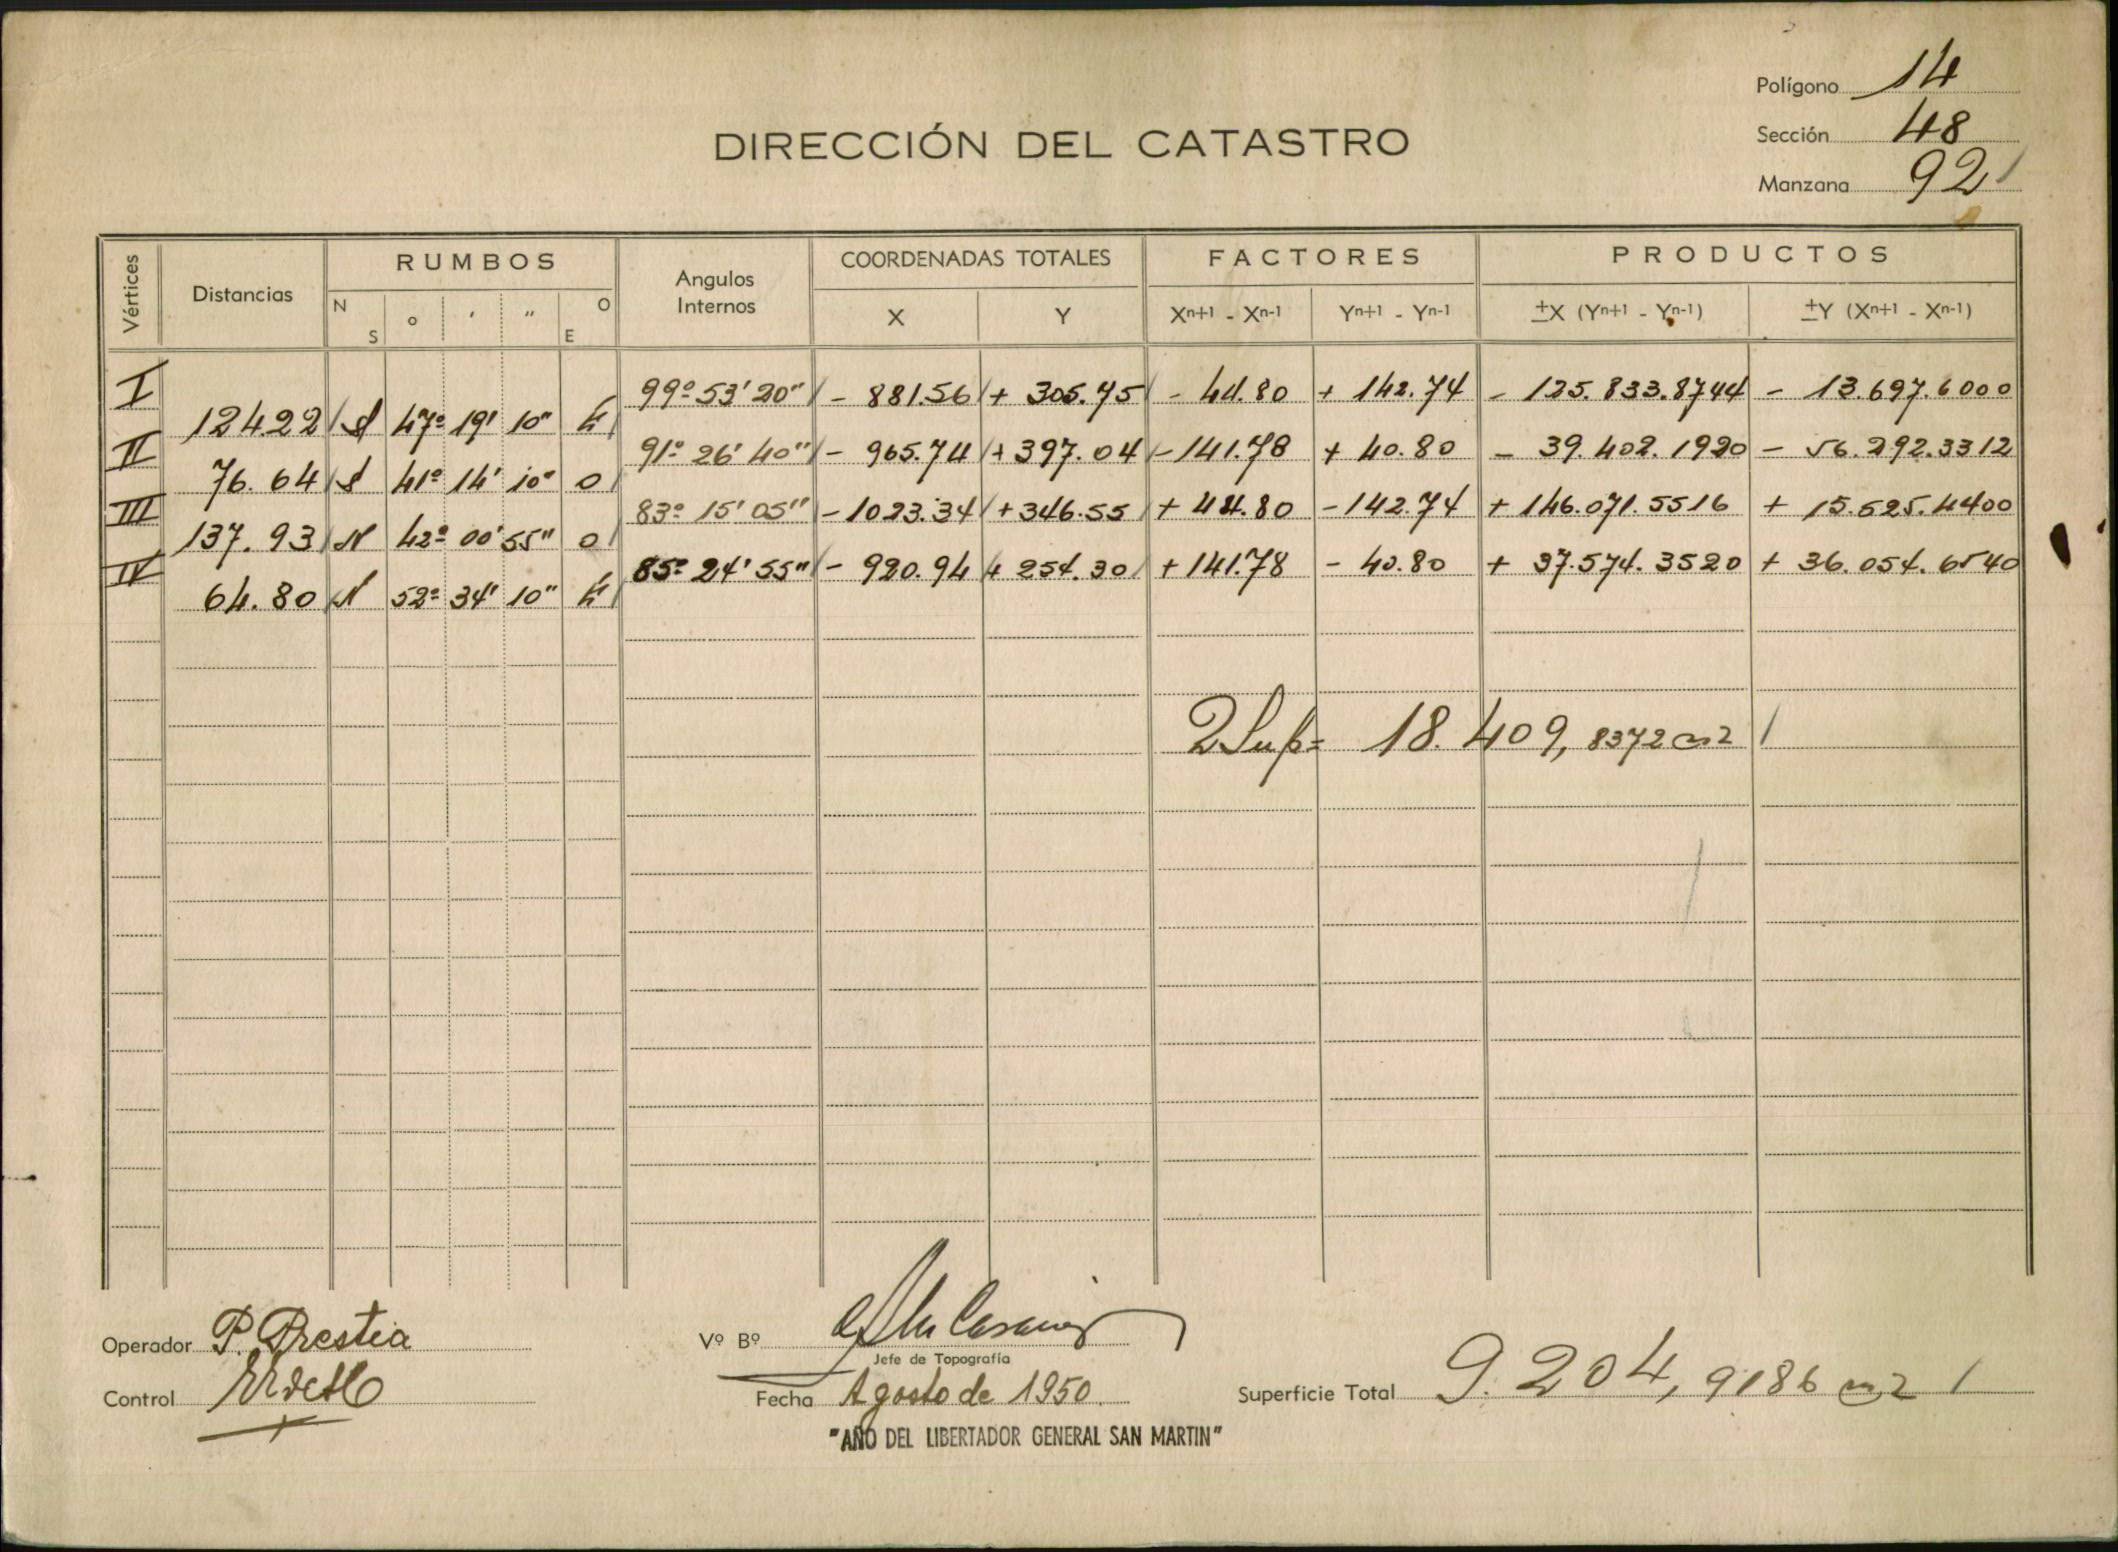 Polígono 14
Sección 48
Manzana 92
DIRECCIÓN DEL CATASTRO
Vértices Distancias RUMBOS Angulos Internos COORDENADAS TOTALES FACTORES PRODUCTOS
N S o ' " O E X Y Xn+1 - Xn-1 Yn+1 - Yn-1 ±X (Yn+1 - Yn-1) ±Y (Xn+1 - Xn-1)
I 99º 53' 20" - 881.56 + 305.75 - 44.80 + 142.74 - 125.833.8744 - 13.697.6000
124.22 S 47º 19' 10" E
II 91º 26' 40" - 965.74 + 397.04 - 141.78 + 40.80 - 39.402.1920 - 56.292.3312
76.64 S 41º 14' 10" O
III 83º 15' 05" - 1023.34 + 346.55 + 44.80 - 142.74 + 146.071.5516 + 15.525.4400
137.93 N 42º 00' 55" O
IV 85º 24' 55" - 920.94 + 254.30 + 141.78 - 40.80 + 37.574.3520 + 36.054.6540
64.80 N 52º 34' 10" E
2Sup= 18.409,8372 m2
Operador P. Prestia
Control
Vº Bº
Jefe de Topografía
Fecha Agosto de 1950.
Superficie Total 9.204,9186 m2
"AÑO DEL LIBERTADOR GENERAL SAN MARTIN"